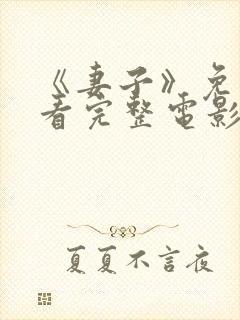 《妻子》免
看完整電影
夏夏不言夜